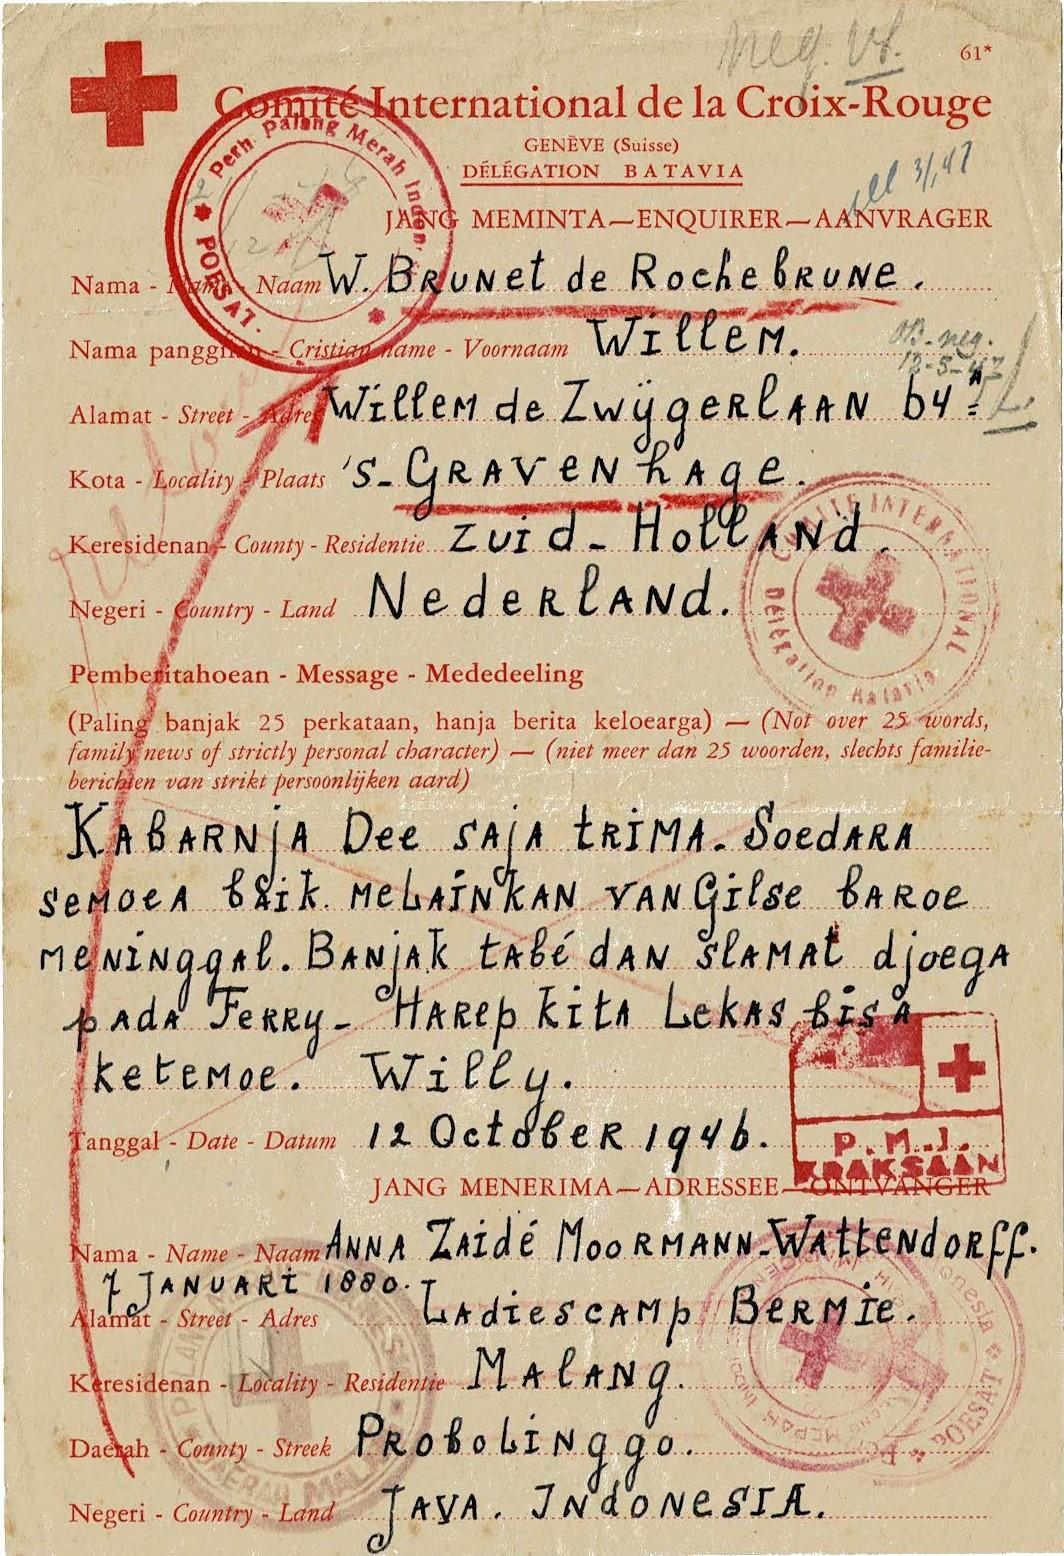 neg. Vf.
61*
Comité International de la Croix-Rouge
GENÈVE (Suisse)
DÉLÉGATION BATAVIA
3/,47
JANG MEMINTA—ENQUIRER—AANVRAGER
Perh. Palang Merah Indon.
POESAT.
Nama - Name - Naam W. Brunet de Rochebrune.
Nama panggilan - Cristian name - Voornaam Willem.
neg.
12-5-47
Alamat - Street - Adres Willem de Zwijgerlaan 64 A
Kota - Locality - Plaats 's-Gravenhage.
Keresidenan - County - Residentie Zuid-Holland.
Negeri - Country - Land Nederland.
COMITÉ INTERNATIONAL
Délégation Batavia
Pemberitahoean - Message - Mededeeling
(Paling banjak 25 perkataan, hanja berita keloearga) — (Not over 25 words,
family news of strictly personal character) — (niet meer dan 25 woorden, slechts familie-
berichten van strikt persoonlijken aard)
Kabarnja Dee saja trima. Soedara
semoea baik. melainkan van Gilse baroe
meninggal. Banjak tabé dan slamat djoega
pada Ferry - Harep kita Lekas bisa
ketemoe. Willy.
P.M.I.
KRAKSAÄN
Tanggal - Date - Datum 12 October 1946.
JANG MENERIMA—ADRESSEE—ONTVANGER
Nama - Name - Naam Anna Zaidé Moormann-Wattendorff.
7 Januari 1880.
Alamat - Street - Adres Ladiescamp Bermie.
Keresidenan - Locality - Residentie Malang.
Daerah - County - Streek Probolinggo.
Negeri - Country - Land Java. Indonesia.
POESAT